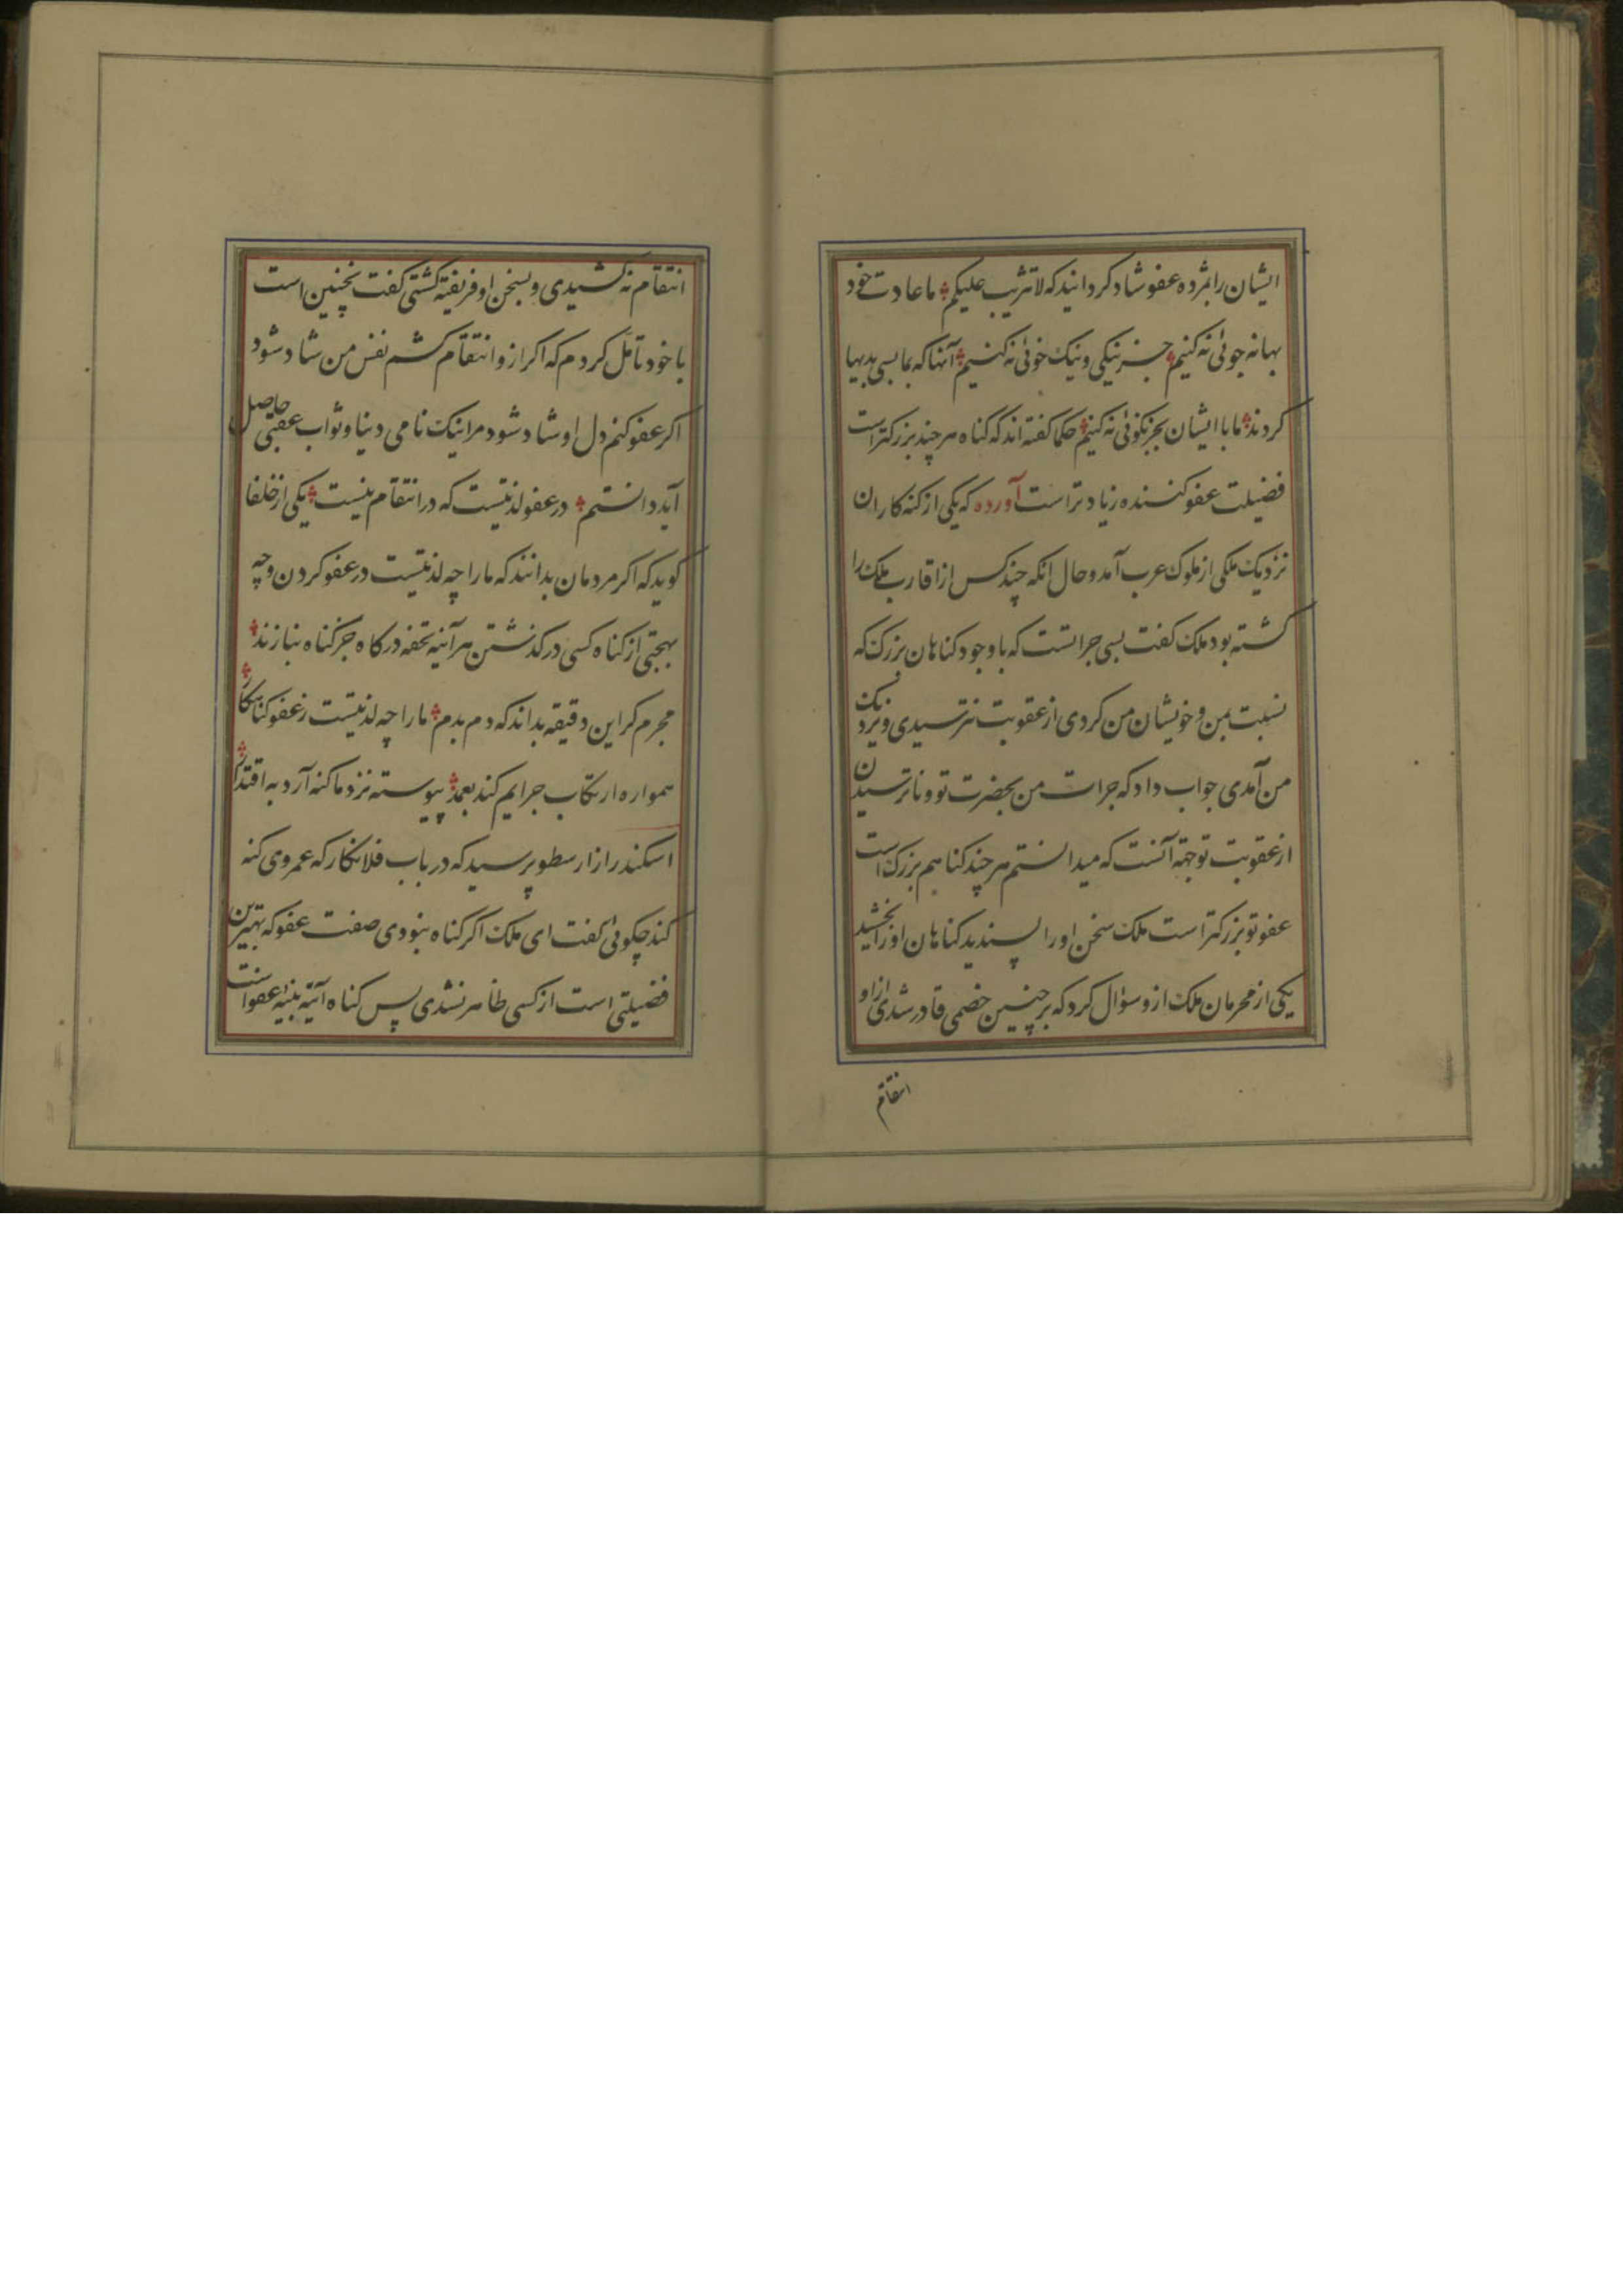 ایشان را بمژده عفو شاد کردانید که لا تثریب علیکم ما عادت خود
بهانه جوئی نه کنیم جز نیکی و نیک خوئی نه کنیم آنها که بما بسی بدیها
کردند ما با ایشان بجز نکوئی نه کنیم حکما کفته اند که کناه هر چند بزرکتر است
فضیلت عفو کننده زیادتر است آورده که یکی از کنه کاران
نزدیک ملکی از ملوک عرب آمد و حال انکه چند کس از اقارب ملک را
کشته بود ملک کفت بسی جراتست که با وجود کناهان بزرک که
نسبت بمن و خویشان من کردی از عقوبت نترسیدی و نزدیک
من آمدی جواب داد که جرات من بحضرت تو و ناترسیدن
از عقوبت تو جهة آنست که میدانستم هر چند کناهم بزرک است
عفو تو بزرکتر است ملک سخن او را پسندید کناهان او را بخشید
یکی از محرمان ملک ازو سؤال کرد که بر چنین خصمی قادر شدی از او
انتقام
انتقام نه کشیدی و بسخن او فریفته کشتی کفت نچنین است
با خود تأمل کردم که اکر ازو انتقام کشم نفس من شاد شود
اکر عفو کنم دل او شاد شود مرا نیک نامی دنیا و ثواب عقبی حاصل
آید دانستم در عفو لذتیست که در انتقام نیست یکی از خلفا
کوید که اکر مردمان بدانند که ما را چه لذتیست در عفو کردن و چه
بهجتی از کناه کسی در کذشتن هر آینه تحفه درکاه جز کناه نیازند
مجرم کر این دقیقه بداند که دم بدم ما را چه لذتیست ز عفو کناهکار
همواره ارتکاب جرایم کند بعمد پیوسته نزد ما کنه آرد به اقتدار
اسکندر از ارسطو پرسید که در باب فلان کار که عمر وی کنه
کند چکوئی کفت ای ملک اکر کناه نبودی صفت عفو که بهترین
فضیلتی است از کسی ظاهر نشدی پس کناه آینه عفو است